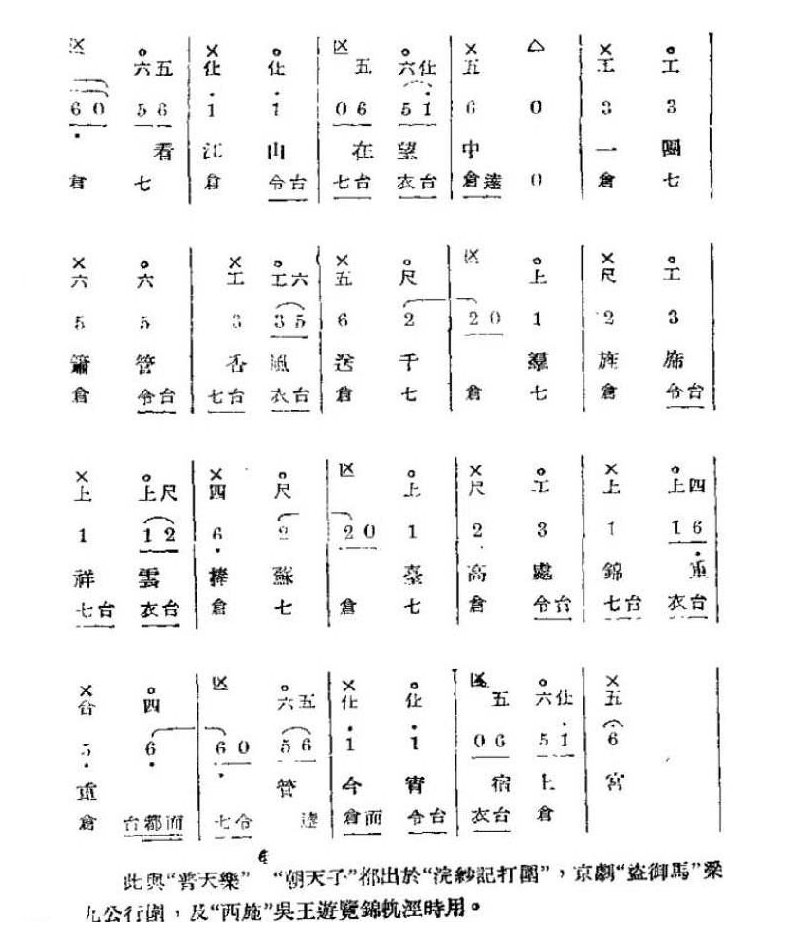 区 。 × 。 区 。 × △ × 。
六五 仩 仩 五 六仩 五 工 工
6 0 5 6 1 1 0 6 5 1 6 0 3 3
看 江 山 在 望 中 一 團
倉 七 倉 令台 七台 衣台 倉 0 倉 七
× 。 × 。 × 。 区 。 × 。
六 六 工 工六 五 尺 上 尺 工
5 5 3 3 5 6 2 2 0 1 2 3
簫 管 香 風 送 千 旌
倉 令台 七台 衣台 倉 七 倉 七 倉 令台
× 。 × 。 区 。 × 。 × 。
上 上尺 四 尺 上 尺 工 上 上四
1 1 2 6 2 2 0 1 2 3 1 1 6
祥 雲 捧 蘇 臺 高 處 錦 重
七台 衣台 倉 七 倉 七 倉 令台 七台 衣台
× 。 区 。 × 。 区 。 ×
合 四 六五 仩 仩 五 六仩 五
5 6 6 0 5 6 1 1 0 6 5 1 6
重 管 今 宵 宿 上 宮
倉 台都而 七令 倉而 令台 衣台 倉
此與“普天樂” “朝天子”都出於“浣紗記打圍”，京劇“盜御馬”梁
九公行圍，及“西施”吳王遊覽錦帆涇時用。